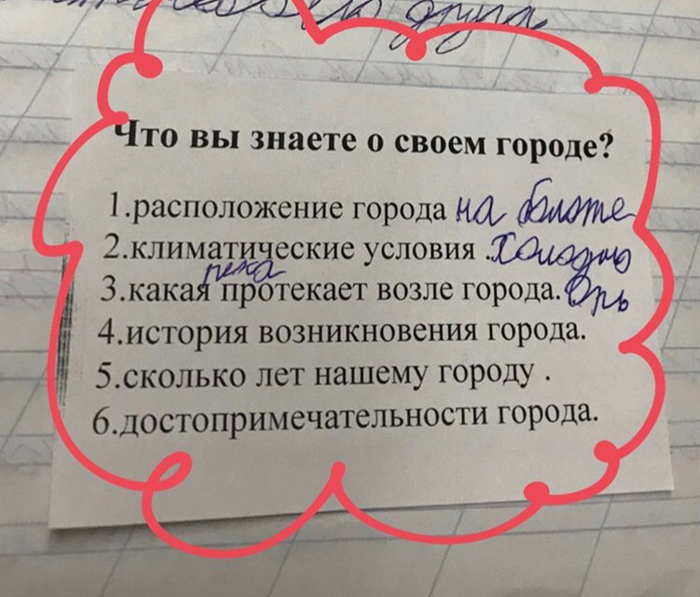 друга
Что вы знаете о своем городе?
1.расположение города на болоте
2.климатические условия .Холодно
река
3.какая протекает возле города. Обь
4.история возникновения города.
5.сколько лет нашему городу .
6.достопримечательности города.